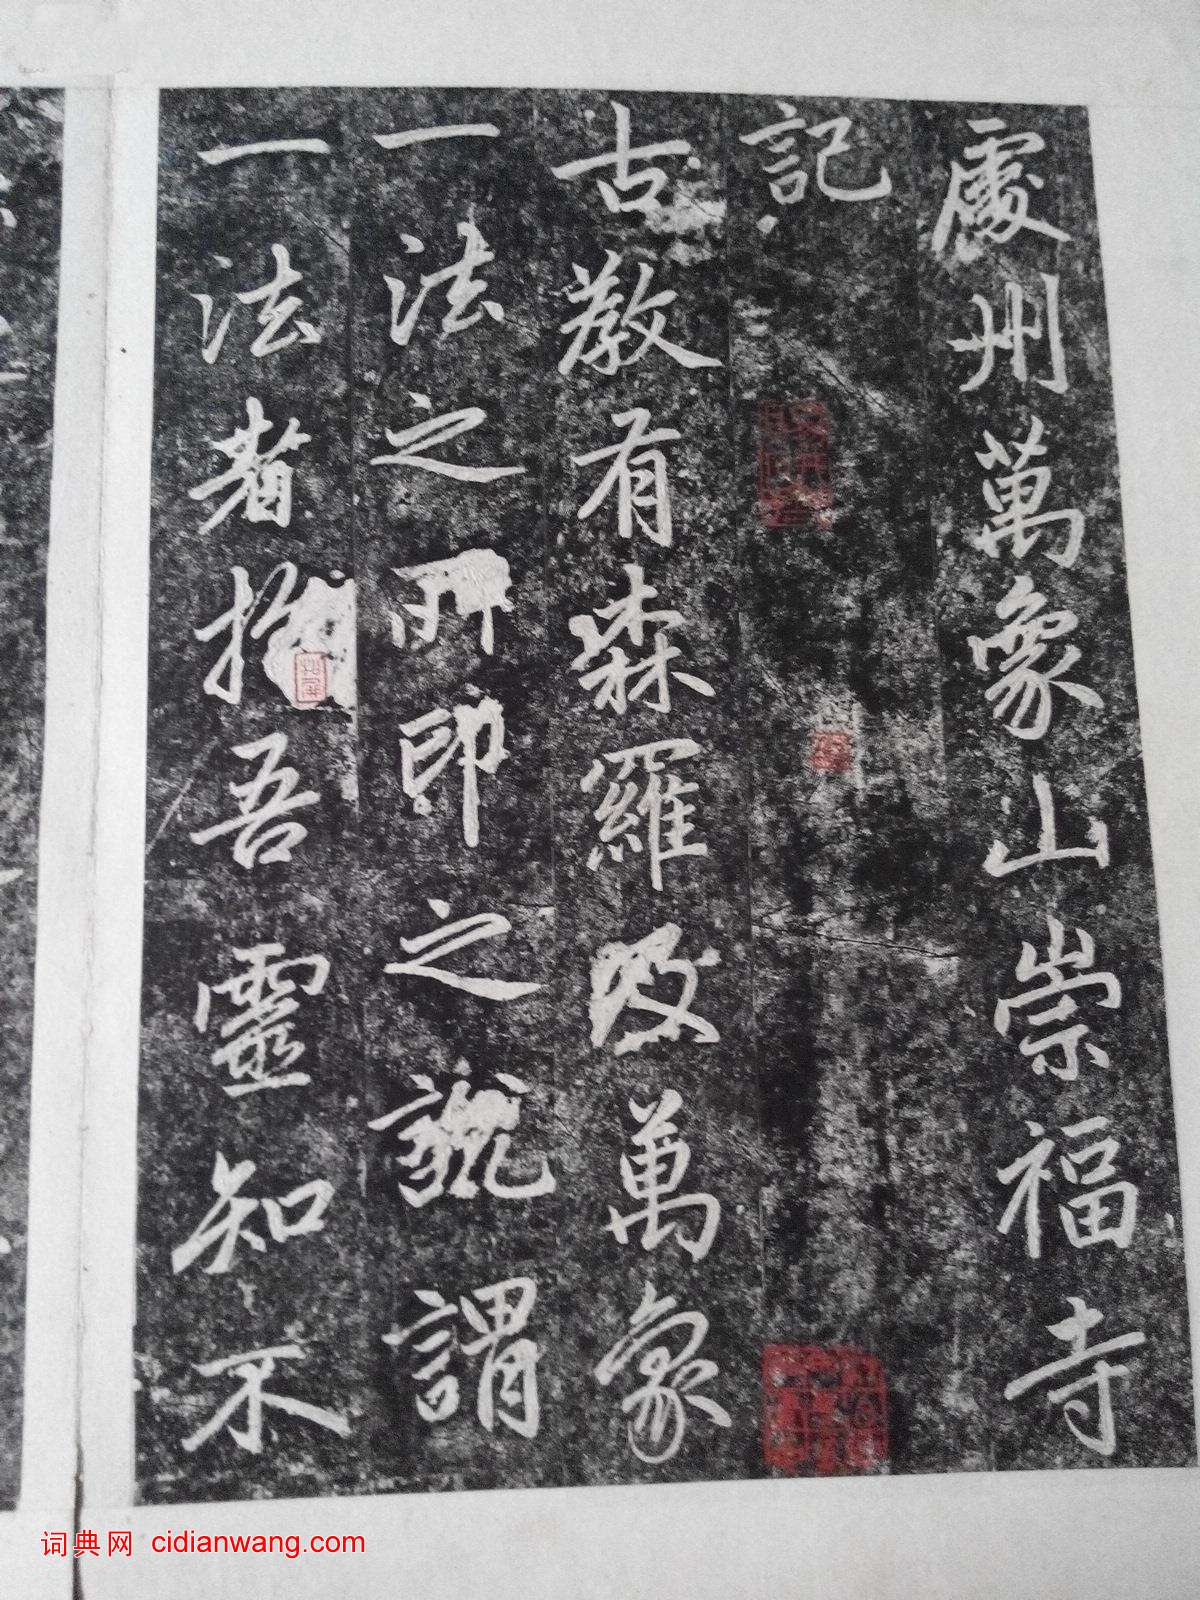 處州萬象山崇福寺
記
古教有森羅及萬象
一法之所印之說謂
一法者指吾靈知不
词典网 cidianwang.com